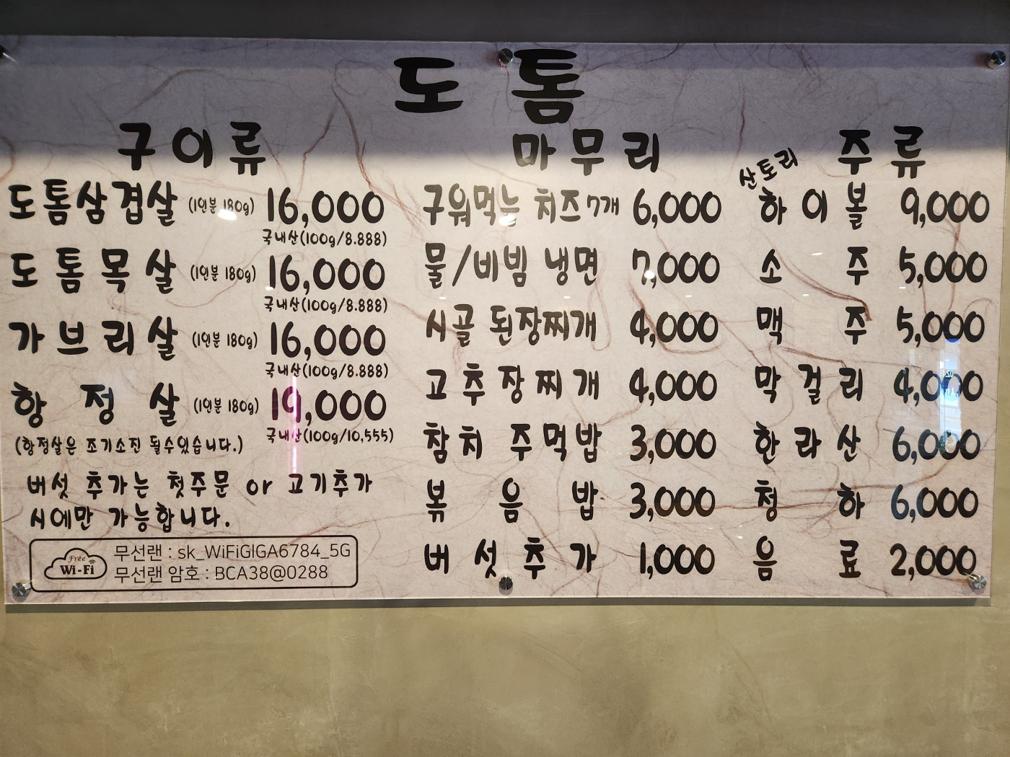 도톰
구이류
도톰삼겹살 (1인분 180g) 16,000
국내산(100g/8.888)
도톰목살 (1인분 180g) 16,000
국내산(100g/8.888)
가브리살 (1인분 180g) 16,000
국내산(100g/8.888)
항정살 (1인분 180g) 19,000
국내산(100g/10,555)
(항정살은 조기소진 될수있습니다.)
버섯 추가는 첫주문 or 고기추가
시에만 가능합니다.
Free
Wi-Fi
무선랜 : sk_WiFiGIGA6784_5G
무선랜 암호 : BCA38@0288
마무리
구워먹는 치즈 7개 6,000
물/비빔 냉면 7,000
시골 된장찌개 4,000
고추장찌개 4,000
참치 주먹밥 3,000
볶음밥 3,000
버섯추가 1,000
주류
산토리
하이볼 9,000
소주 5,000
맥주 5,000
막걸리 4,000
한라산 6,000
청하 6,000
음료 2,000